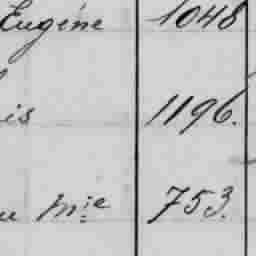 Eugène 1048
is 1196.
u Mie 753.